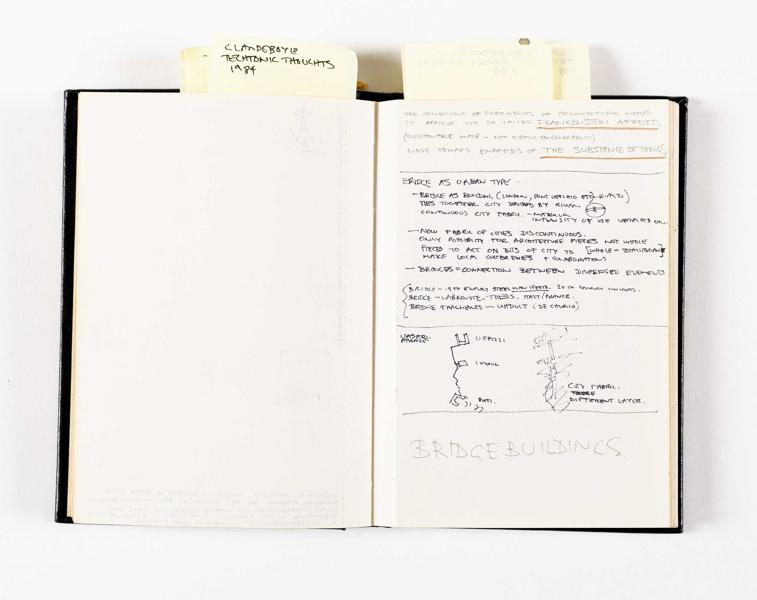 CLANDEBOYE
TECHTONIC THOUGHTS
1984
THE COMBINING OF FRAGMENTS OF ARCHITECTURAL
TO ACHIEVE THE SO CALLED FRANKENSTEIN AFFECT.
(QUESTIONABLE SCALE - NOT
MOVE TOWARD EMPHASIS OF THE SUBSTANCE OF THINGS.
BRIDGE AS URBAN TYPE.
- BRIDGE AS BUILDING (LONDON, PONT VECCHIO ETC, RIALTO)
TIES TOGETHER CITY DIVIDED BY RIVER.
CONTINUOUS CITY FABRIC. - MAXIMUM
INTENSITY OF USE
- NOW FABRIC OF CITIES DISCONTINUOUS.
ONLY POSSIBILITY FOR ARCHITECTURE PIECES NOT WHOLE
PIECES TO ACT ON BITS OF CITY TO [WHOLE =
MAKE LOCAL COHERENCES + COLLABORATIONS
- BRIDGES = CONNECTION BETWEEN DISPERSED ELEMENTS
BRIDGE - 19TH CENTURY STEEL MANIFESTO. 20TH
BRIDGE - LABROUSTE - THESIS. ITALY/FRANCE.
BRIDGE FRAGMENTS - VIADUCT (DE CHIRICO)
VASARI
UFFIZI
PITTI.
CITY FABRIC.
DIFFERENT LAYER.
BRIDGE BUILDINGS